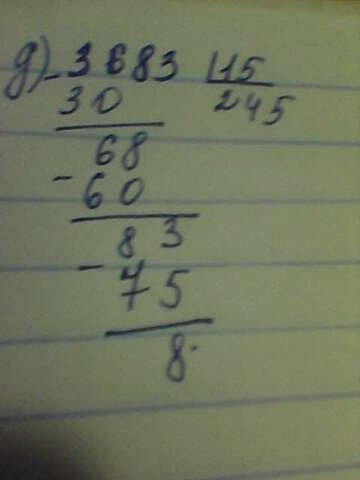 д) - 3683 | 15
30 245
68
- 60
83
- 75
8